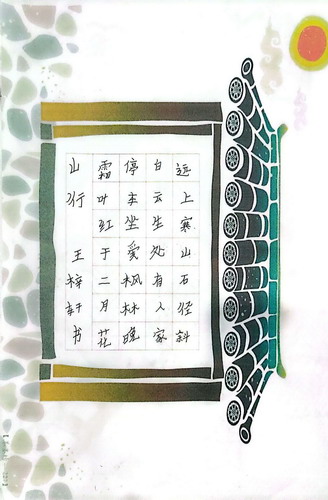 远上寒山石径斜
白云生处有人家
停车坐爱枫林晚
霜叶红于二月花
山行 王梓轩书